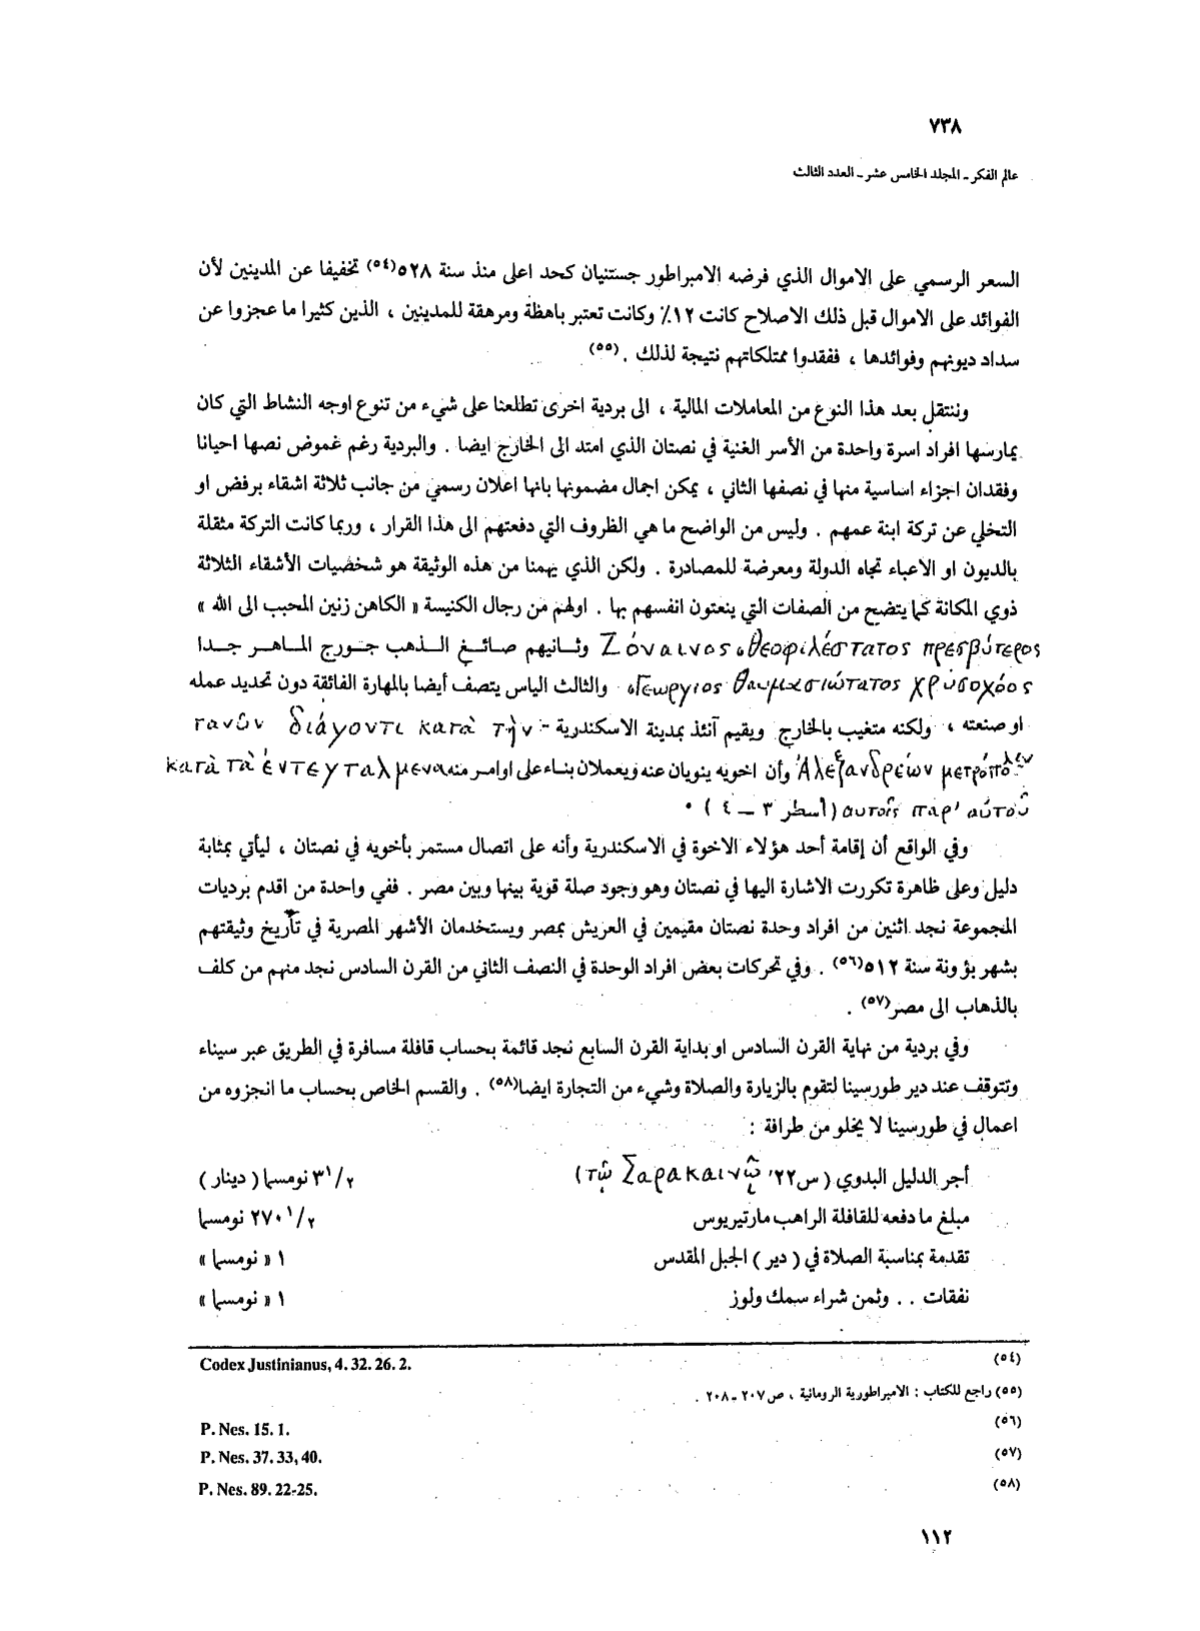 ٧٣٨
عالم الفكر ـ المجلد الخامس عشر ـ العدد الثالث
السعر الرسمي على الاموال الذي فرضه الامبراطور جستنيان كحد اعلى منذ سنة ٥٢٨(٥٤) تخفيفا عن المدينين لأن
الفوائد على الاموال قبل ذلك الاصلاح كانت ١٢٪ وكانت تعتبر باهظة ومرهقة للمدينين ، الذين كثيرا ما عجزوا عن
سداد ديونهم وفوائدها ، ففقدوا ممتلكاتهم نتيجة لذلك . (٥٥)
وننتقل بعد هذا النوع من المعاملات المالية ، الى بردية اخرى تطلعنا على شيء من تنوع اوجه النشاط التي كان
يمارسها افراد اسرة واحدة من الأسر الغنية في نصتان الذي امتد الى الخارج ايضا . والبردية رغم غموض نصها احيانا
وفقدان اجزاء اساسية منها في نصفها الثاني ، يمكن اجمال مضمونها بانها اعلان رسمي من جانب ثلاثة اشقاء برفض او
التخلي عن تركة ابنة عمهم . وليس من الواضح ما هي الظروف التي دفعتهم الى هذا القرار ، وربما كانت التركة مثقلة
بالديون او الاعباء تجاه الدولة ومعرضة للمصادرة . ولكن الذي يهمنا من هذه الوثيقة هو شخصيات الأشقاء الثلاثة
ذوي المكانة كما يتضح من الصفات التي ينعتون انفسهم بها . اولهم من رجال الكنيسة « الكاهن زنين المحبب الى الله »
Ζόναινος ὁ θεοφιλέστατος πρεσβύτερος وثانيهم صائغ الذهب جورج الماهر جدا
Γεωργιος θαυμασιώτατος χρύσοχόος والثالث الياس يتصف أيضا بالمهارة الفائقة دون تحديد عمله
او صنعته ، ولكنه متغيب بالخارج ويقيم آنئذ بمدينة الاسكندرية - τανῦν διάγοντι κατὰ τὴν
Ἀλεξανδρείων μετρόπολιν وأن اخويه ينويان عنه ويعملان بناء على اوامر منه κατὰ τὰ ἐντεγταλμενα
αυτοῖς παρ' αὐτοῦ (أسطر ٣ ــ ٤ ) .
وفي الواقع أن إقامة أحد هؤلاء الاخوة في الاسكندرية وأنه على اتصال مستمر بأخويه في نصتان ، ليأتي بمثابة
دليل وعلى ظاهرة تكررت الاشارة اليها في نصتان وهو وجود صلة قوية بينها وبين مصر . ففي واحدة من اقدم برديات
المجموعة نجد اثنين من افراد وحدة نصتان مقيمين في العريش بمصر ويستخدمان الأشهر المصرية في تأريخ وثيقتهم
بشهر بؤونة سنة ٥١٢(٥٦) . وفي تحركات بعض افراد الوحدة في النصف الثاني من القرن السادس نجد منهم من كلف
بالذهاب الى مصر(٥٧) .
وفي بردية من نهاية القرن السادس او بداية القرن السابع نجد قائمة بحساب قافلة مسافرة في الطريق عبر سيناء
وتتوقف عند دير طورسينا لتقوم بالزيارة والصلاة وشيء من التجارة ايضا(٥٨) . والقسم الخاص بحساب ما انجزوه من
اعمال في طورسينا لا يخلو من طرافة :
أجر الدليل البدوي ( س٢٢، τῷ Σαρακαινῷ) ٣١/٢ نومسما ( دينار )
مبلغ ما دفعه للقافلة الراهب مارتيريوس ٢٧٠١/٢ نومسما
تقدمة بمناسبة الصلاة في ( دير ) الجبل المقدس ١ « نومسما »
نفقات . . وثمن شراء سمك ولوز ١ « نومسما »
(٥٤) Codex Justinianus, 4. 32. 26. 2.
(٥٥) راجع للكتاب : الامبراطورية الرومانية ، ص ٢٠٧ ـ ٢٠٨ .
(٥٦) P. Nes. 15. 1.
(٥٧) P. Nes. 37. 33, 40.
(٥٨) P. Nes. 89. 22-25.
١١٢